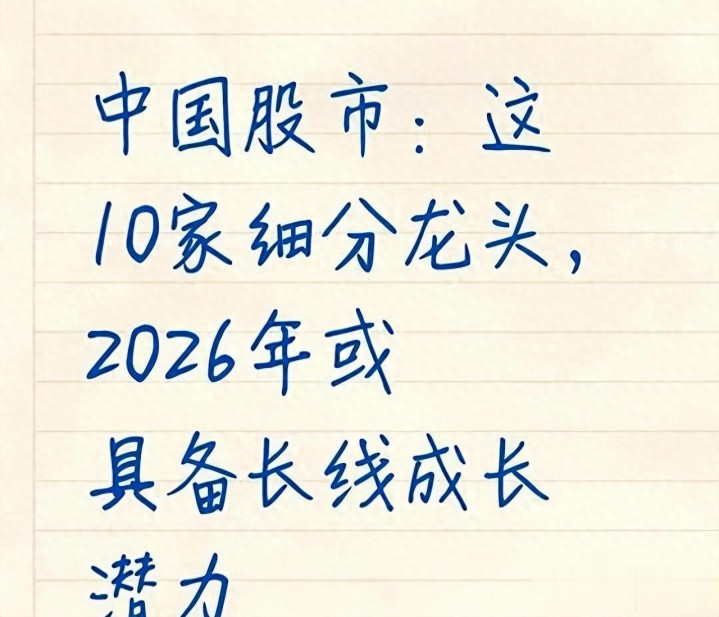 中国股市：这
10家细分龙头，
2026年或
具备长线成长
潜力